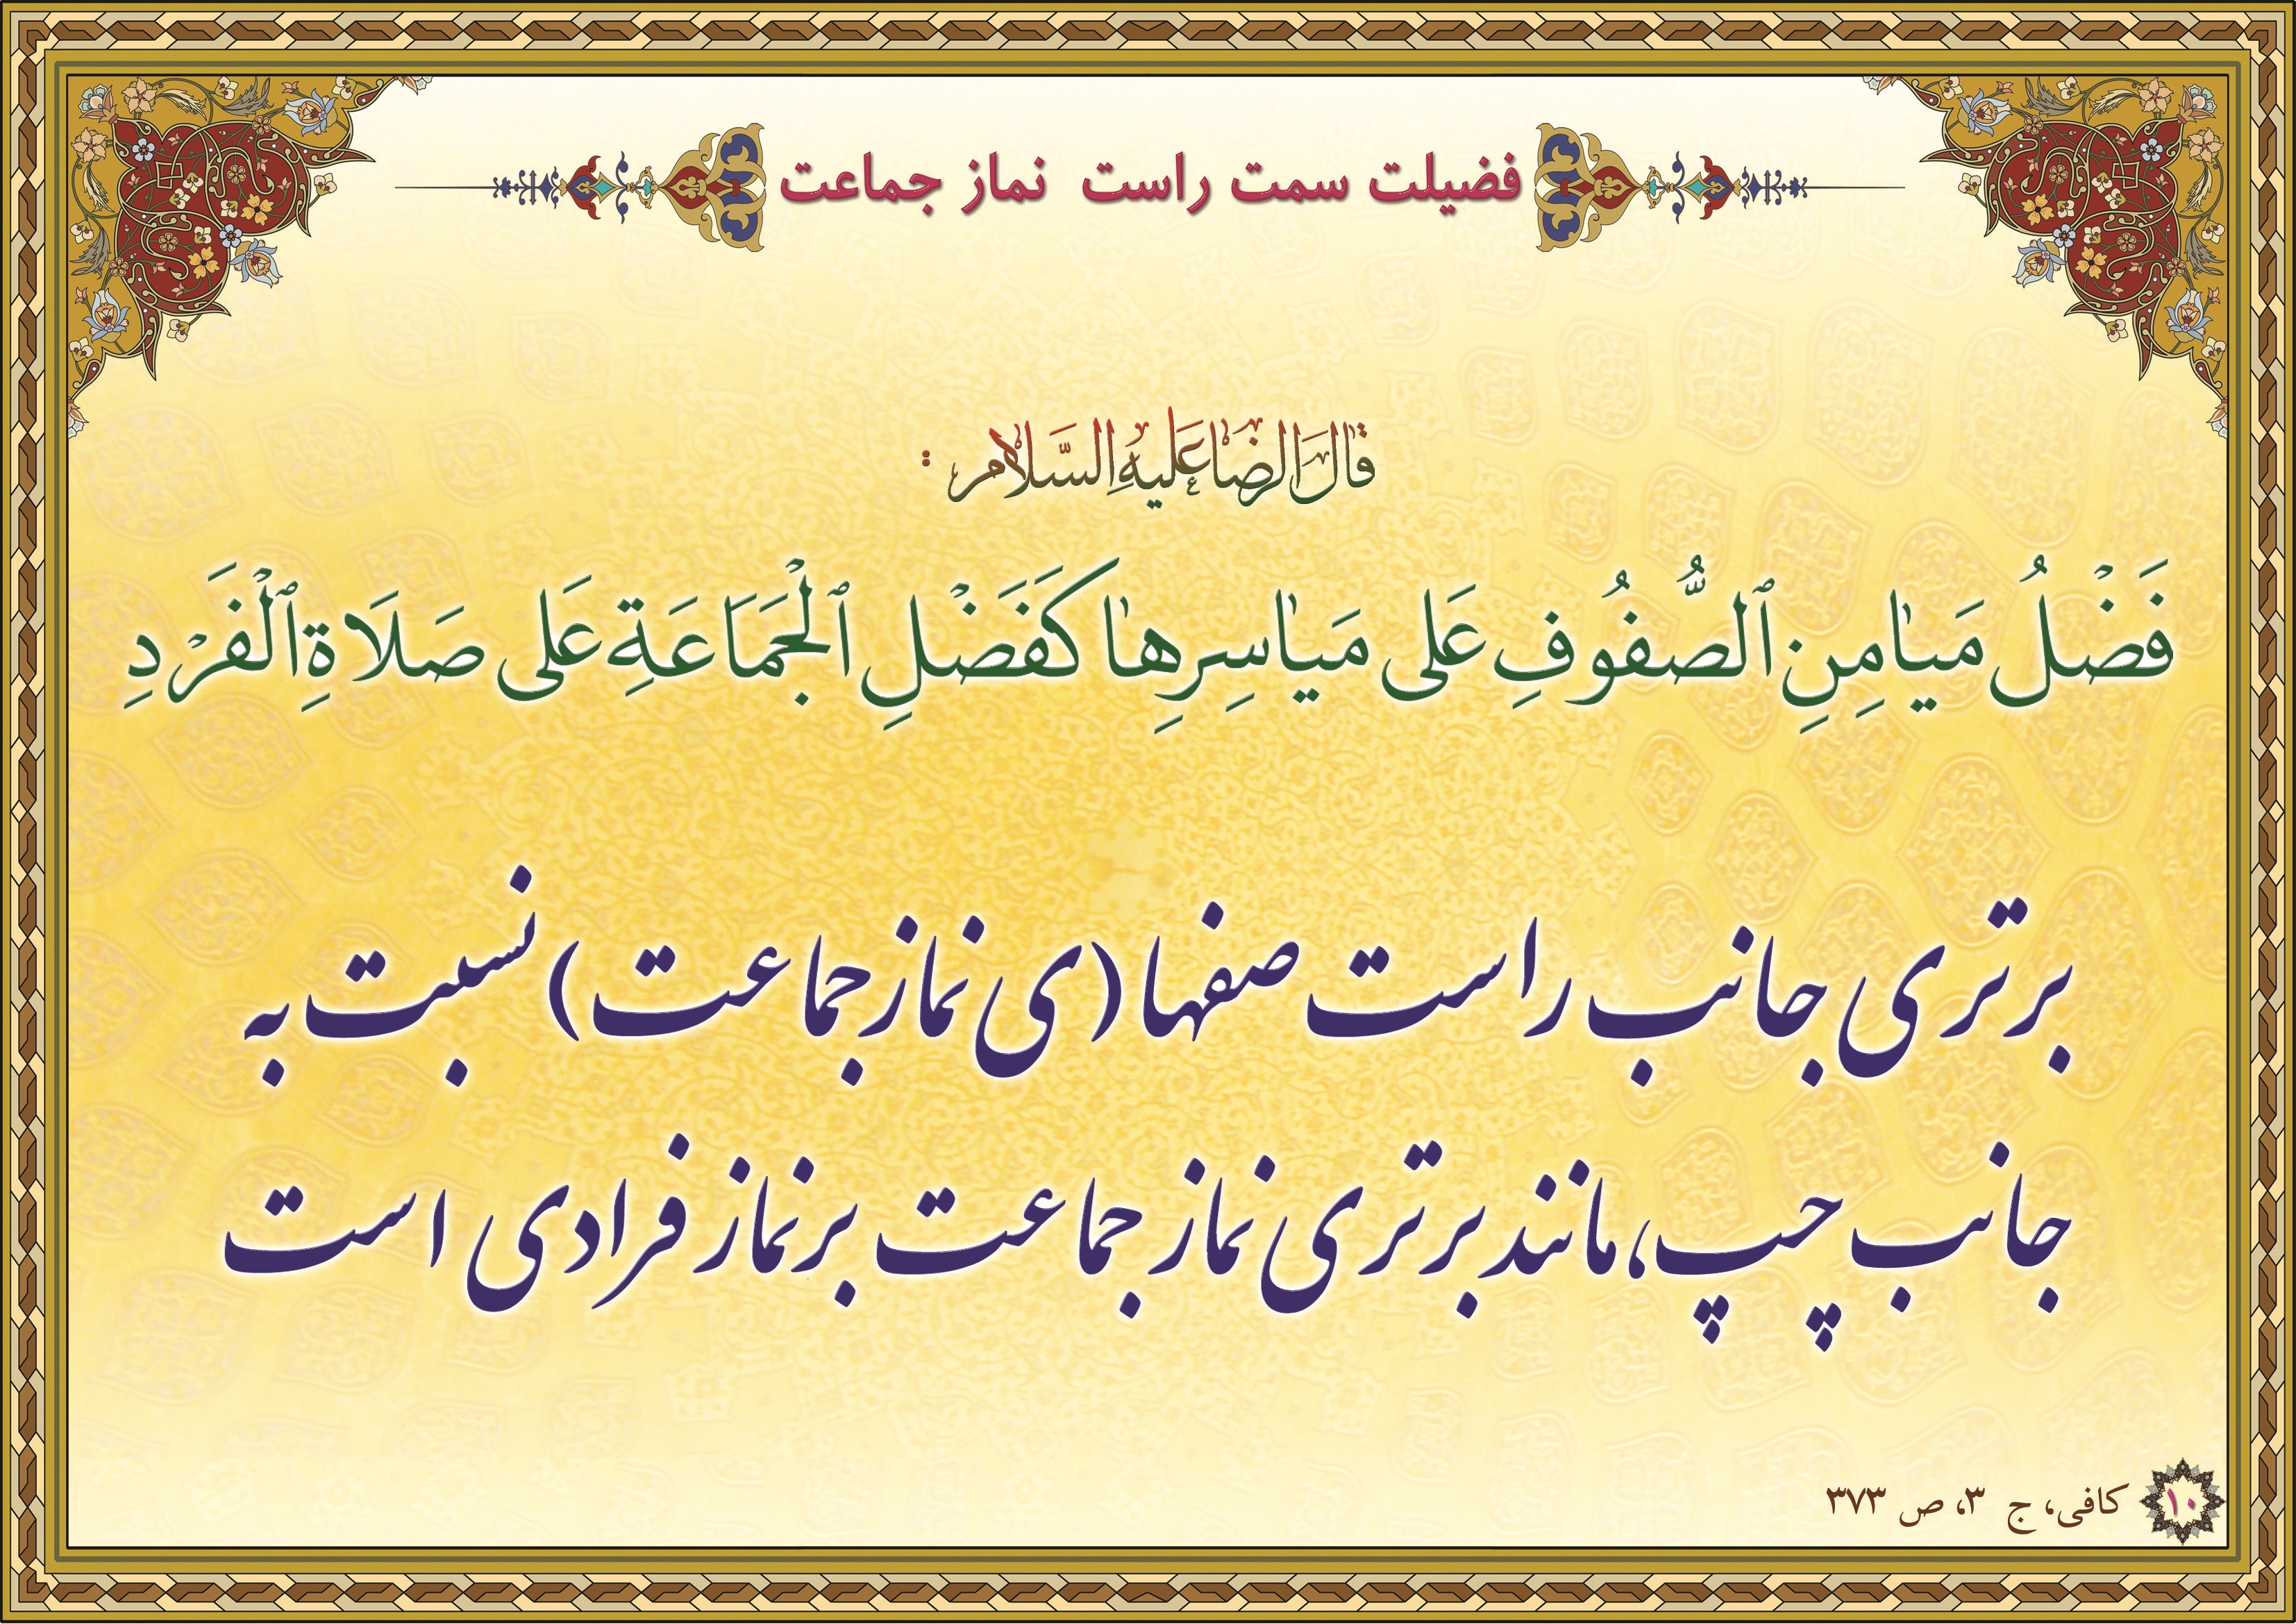 فضیلت سمت راست نماز جماعت
قَالَ الرِّضَا عَلَيهِ السَّلام :
فَضْلُ مَيٰامِنِ ٱلصُّفُوفِ عَلی مَيٰاسِرِهٰا كَفَضْلِ ٱلْجَمَاعَةِ عَلی صَلَاةِ ٱلْفَرْدِ
برتری جانب راست صفها (ی نماز جماعت) نسبت به
جانب چپ، مانند برتری نماز جماعت بر نماز فرادی است
۱۰ کافی، ج ۳، ص ۳۷۳